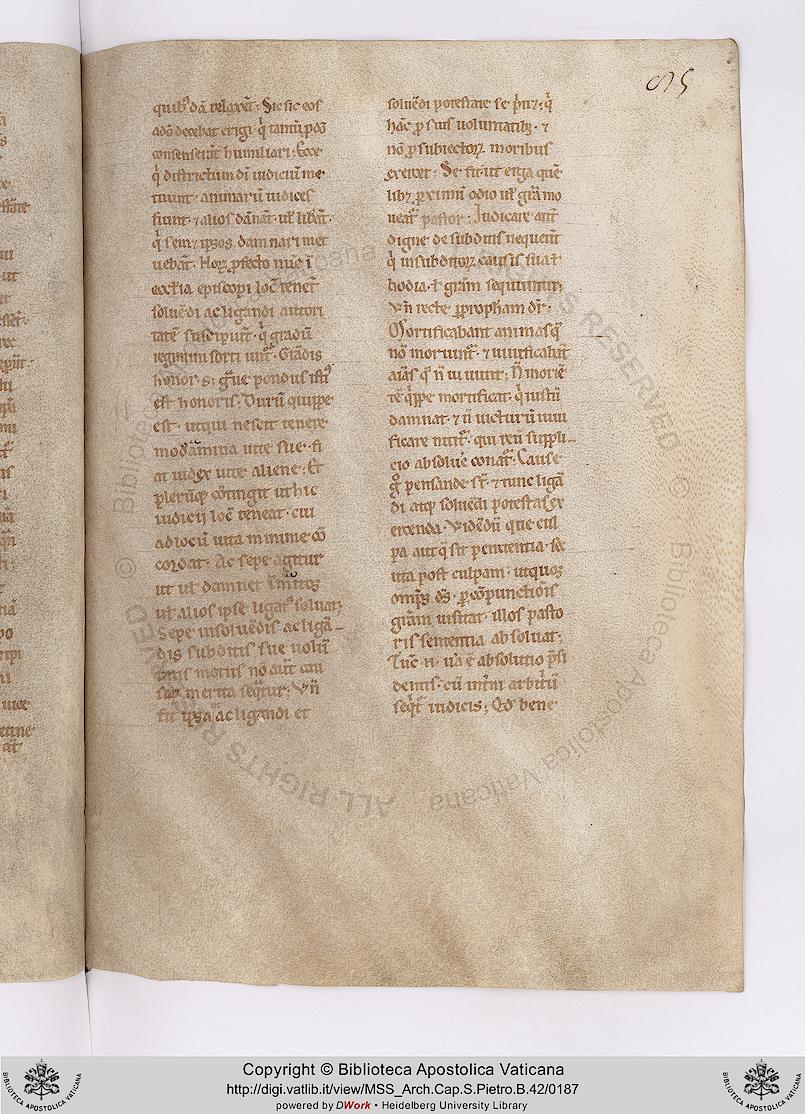 95
quib⁹ dā relaxēt. Sic sic eos
adō decebat erigi q̄ tantū ꝓ dō
consenserāt humiliari. Ecce
q̄ districtum dī iudiciū me
tuunt. animarū iudices
fiunt. ⁊ alios dānāt. ul̄ libāt.
q̄ semꝫ ipsos damnari met
uebāt. Hoꝝ ꝓfecto nūc ī
eccl̄ia episcopi locū tenēt
soluēdi ac ligandi autori
tatē suscipiunt. q̄ gradū
regiminis sortiunt̄. Grādis
honor. sꝫ grāue pondus isti⁹
est honoris. Durū quippe
est. ut qui nescit tenere
moderamina uite sue. fi
at iudex uite aliene. Et
plerūqꝫ cōtingit ut hic
iudicii locū teneat. cui
ad locū uita minime cō
cordat. Ac sepe agitur
ut ul̄ damnet īmeritos
ul̄ alios ipse ligat⁹ soluat;
Sepe in soluēdis ac ligā-
dis subditis sue uolū
tatis motus nō aūt cau
saꝝ merita seq̄tur; Vn̄
fit ut ipsa ac ligandi et
soluēdi potestate se p̄uꝫ. q̄
hāc ꝓ suis uoluntatibꝫ. ⁊
nō ꝓ subiectoꝝ moribus
exercet. Sepe fit ut erga quē
libꝫ ꝓximū odio ul̄ grā mo
ueat̄ pastor. Iudicare aūt
digne de subditis nequeūt
q̄ in subditoꝝ causis sua ł
hodia. ł grām sequuntur;
Vn̄ recte ꝑ ꝓpham dr̄.
Mortificabant animas q̄
nō moriunt̄. ⁊ uiuificabāt
aīas q̄ n̄ uiuunt; N̄ moriē
tē q̄ppe mortificat. q̄ iustū
damnat. ⁊ n̄ uicturū uiui
ficare nitit̄. qui reū suppli-
cio absoluē conat̄. Cause
g̊ pensande st̄. ⁊ tunc ligā
di atqꝫ soluēdi potestas ex
ercenda. Videndū que cul
pa aut q̄ sit penitentia. se
cuta post culpam. ut quos
omp̄s ds̄. ꝑ cōpunctionis
grām uisitat. illos pasto
ris sententia absoluat;
Tūc n̄. uā ē absolutio p̄si
dentis. cū int̄ni arbitriū
seq̄t̄ iudicis; Qd̄ bene
Copyright © Biblioteca Apostolica Vaticana
http://digi.vatlib.it/view/MSS_Arch.Cap.S.Pietro.B.42/0187
powered by DWork • Heidelberg University Library